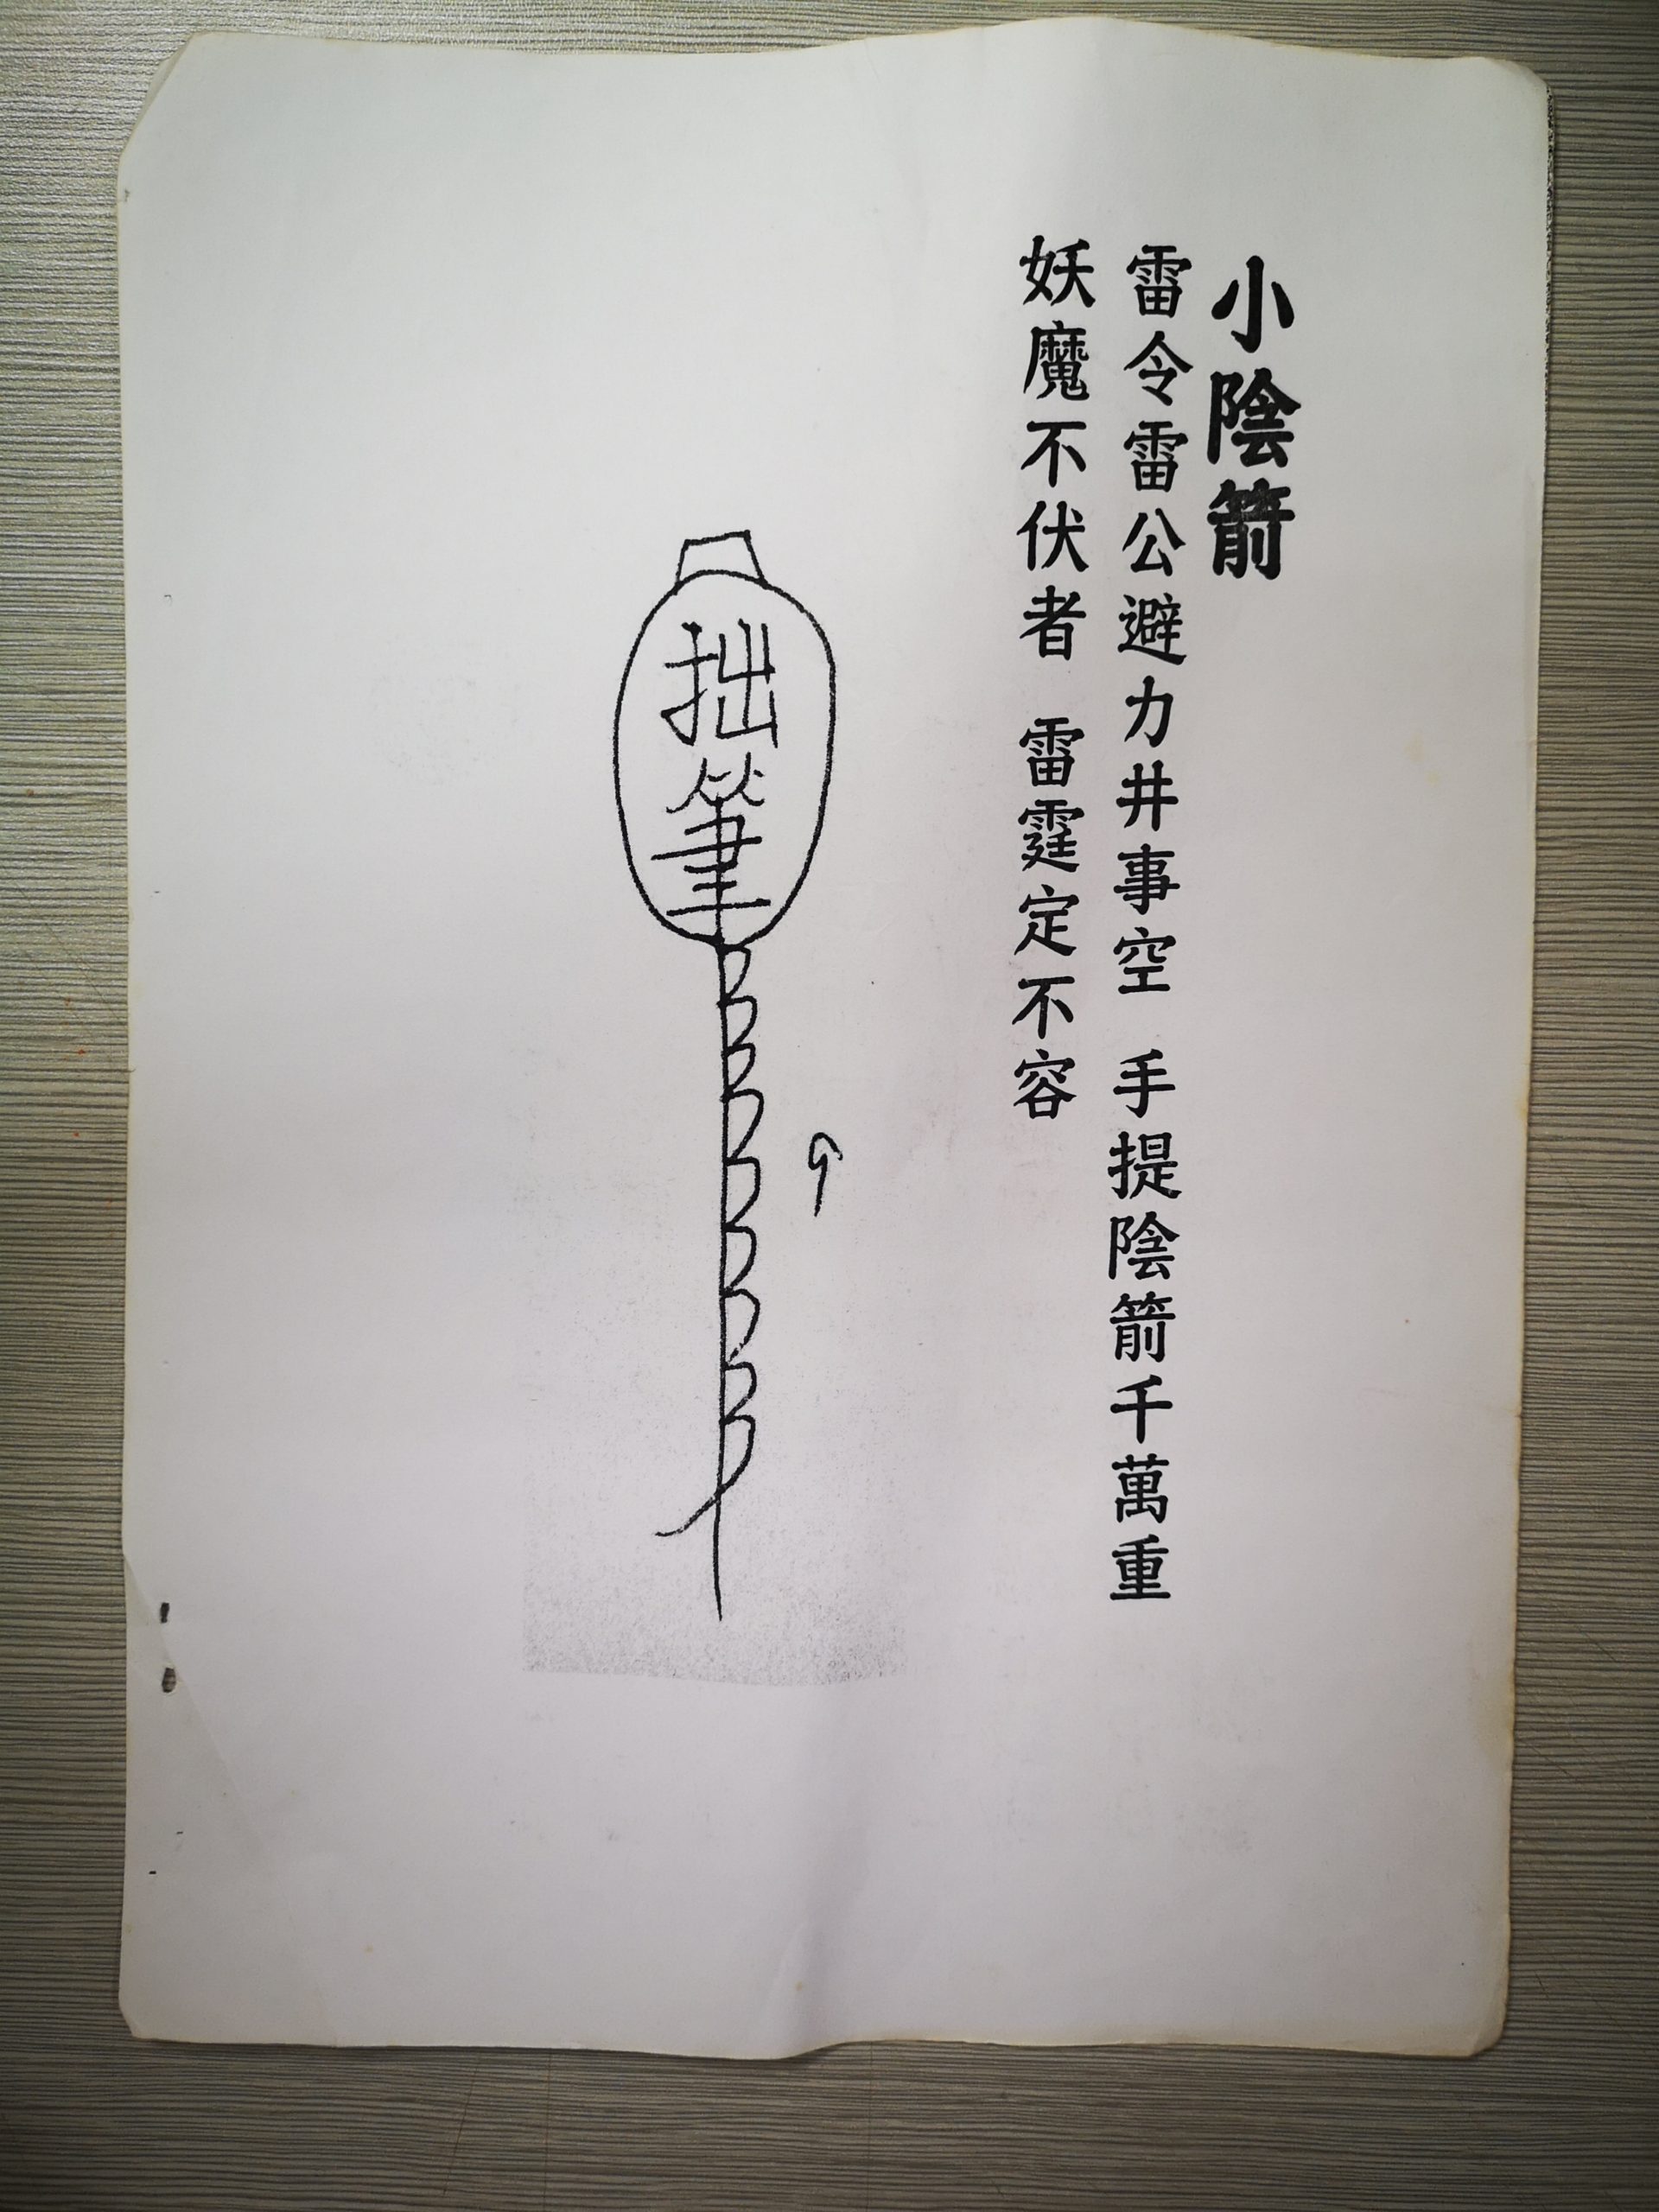 小陰箭
雷令雷公避力井事空 手提陰箭千萬重
妖魔不伏者 雷霆定不容
拙筆